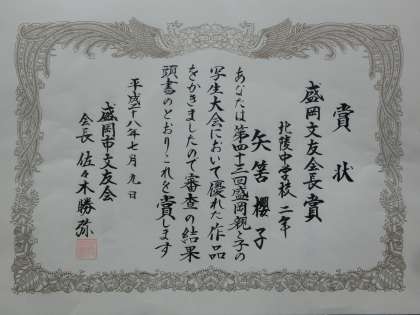 賞状
盛岡文友会長賞
北陵中学校 二年
矢筈櫻子
あなたは第四十三回盛岡親と子の
写生大会において優れた作品
をかきましたので審査の結果
頭書のとおりこれを賞します
平成十八年七月九日
盛岡市文友会
会長 佐々木勝弥